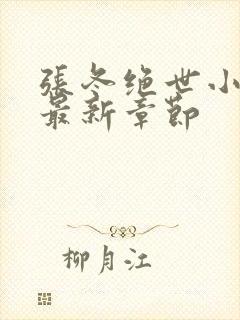 張冬绝世小
最新章節
柳月江